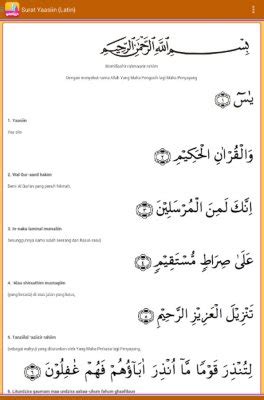 Surat Yaasiin (Latin)
بِسْمِ اللَّهِ الرَّحْمٰنِ الرَّحِيْمِ
Bismillaahir rahmaanir rahiim
Dengan menyebut nama Allah Yang Maha Pengasih lagi Maha Penyayang
يٰسۤ ۝١
1. Yaasiin
Yaa siin
وَالْقُرْاٰنِ الْحَكِيْمِ ۝٢
2. Wal-Qur-aanil hakim
Demi Al Qur'an yang penuh hikmah,
اِنَّكَ لَمِنَ الْمُرْسَلِيْنَ ۝٣
3. In-naka laminal mursaliin
Sesungguhnya kamu salah seorang dari Rasul-rasul
عَلٰى صِرَاطٍ مُّسْتَقِيْمٍ ۝٤
4. 'Alaa shiraathin mustaqiim
(yang berada) di atas jalan yang lurus,
تَنْزِيْلَ الْعَزِيْزِ الرَّحِيْمِ ۝٥
5. Tanziilal 'aziizir rahiim
(sebagai wahyu) yang diturunkan oleh Yang Maha Perkasa lagi Maha Penyayang,
لِتُنْذِرَ قَوْمًا مَّاۤ اُنْذِرَ اٰبَاۤؤُهُمْ فَهُمْ غٰفِلُوْنَ ۝٦
6. Litundzira qauman maa undzira aabaa-uhum fahum ghaafiluun